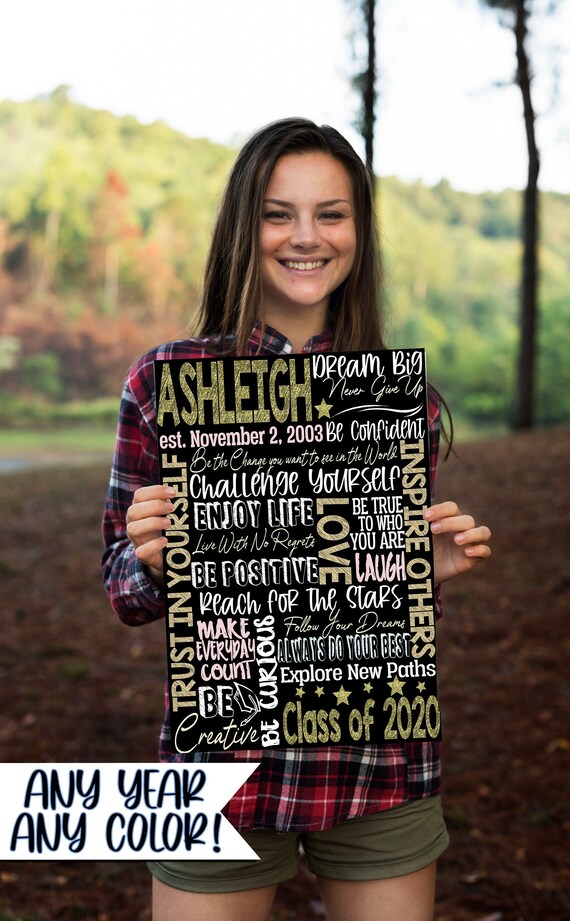 ASHLEIGH
DREAM BIG
Never Give Up
est. November 2, 2003
Be Confident
Be the Change you want to see in the World
Challenge Yourself
TRUST IN YOURSELF
ENJOY LIFE
LOVE
BE TRUE
TO WHO
YOU ARE
INSPIRE OTHERS
Live With No Regrets
BE POSITIVE
LAUGH
Reach for the Stars
MAKE
EVERYDAY
COUNT
BE CURIOUS
Follow Your Dreams
ALWAYS DO YOUR BEST
Explore New Paths
BE
Creative
Class of 2020
ANY YEAR
ANY COLOR!